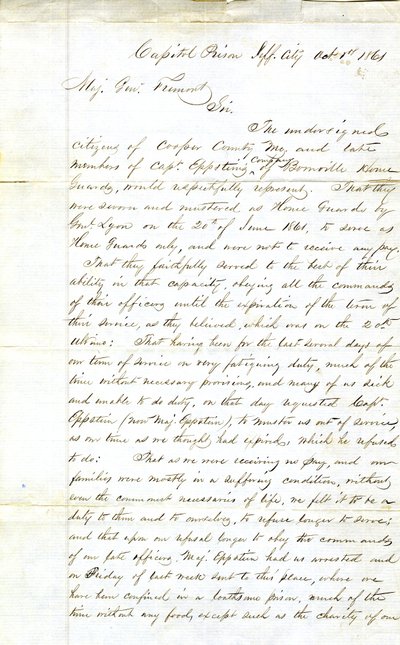 Capitol Prison Jeff. City Oct 1st 1861
Maj. Genl. Fremont
Sir.
The undersigned
citizens of Cooper County Mo, and late
members of Capt. Eppstein's company of Boonville Home
Guards, would respectfully represent. That they
were sworn and mustered as Home Guards by
Genl. Lyon on the 20th of June 1861, to serve as
Home Guards only, and were not to receive any pay.
That they faithfully served to the best of their
ability in that capacity, obeying all the commands
of their officers until the expiration of the term of
their service, as they believed, which was on the 20th
ultimo: That having been for the last several days of
our term of service on very fatiguing duty, much of the
time without necessary provisions, and many of us sick
and unable to do duty, on that day requested Capt.
Eppstein (now Maj. Eppstein), to muster us out of service,
as our time as we thought had expired, which he refused
to do: That as we were receiving no pay, and our
families were mostly in a suffering condition, without
even the commonest necessaries of life, we felt it to be a
duty to them and to ourselves, to refuse longer to serve;
and that upon our refusal longer to obey the commands
of our late officers, Maj. Eppstein had us arrested and
on Friday of last week sent to this place, where we
have been confined in a loathsome prison, much of the
time without any food, except such as the charity of our